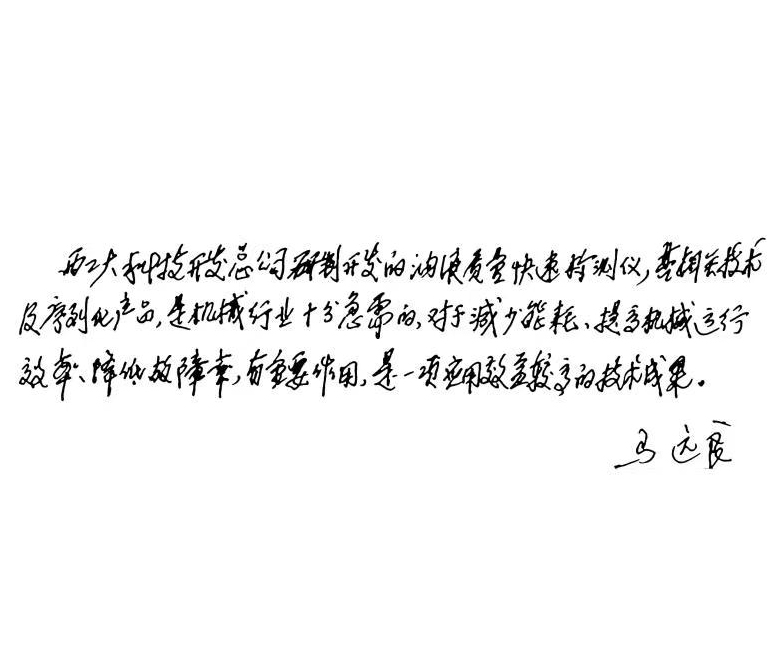 西工大科技开发总公司研制开发的油液质量快速检测仪,其相关技术
及序列化产品,是机械行业十分急需的,对于减少能耗、提高机械运行
效率、降低故障率,有重要作用,是一项应用效益较高的技术成果。
马远良